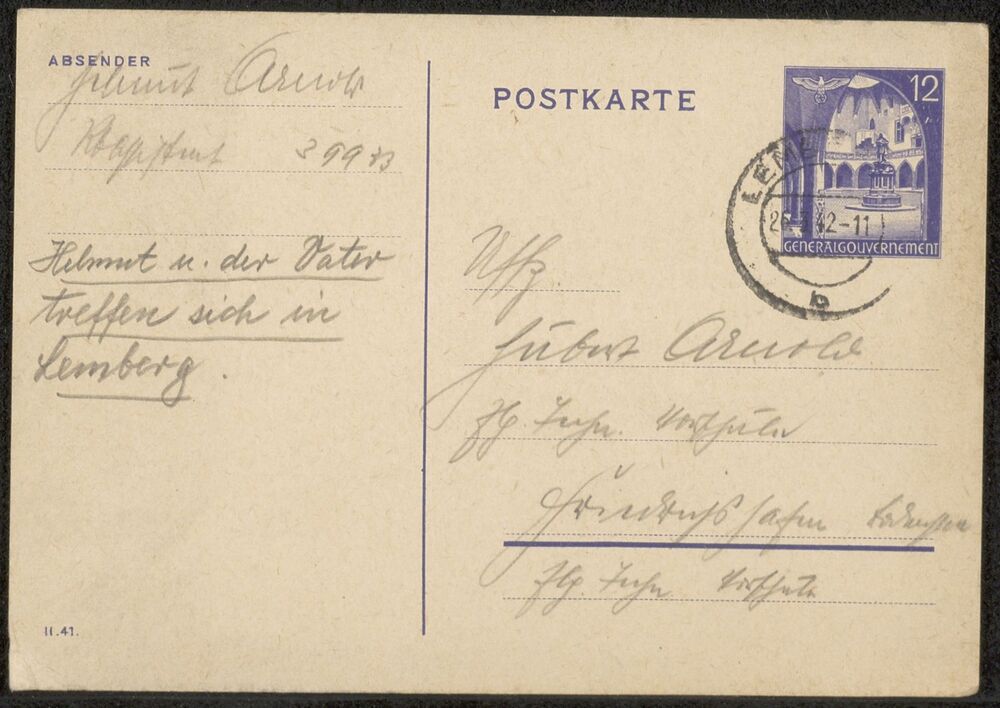 ABSENDER
Helmut Arnold
39983
Helmut u. der Vater
treffen sich in
Lemberg.
II.41.
POSTKARTE
12
GENERALGOUVERNEMENT
LEMB
42-11
b
Uffz.
Hubert Arnold
Techn. Vorschule
Friedrichshafen Bodensee
Techn Vorschule